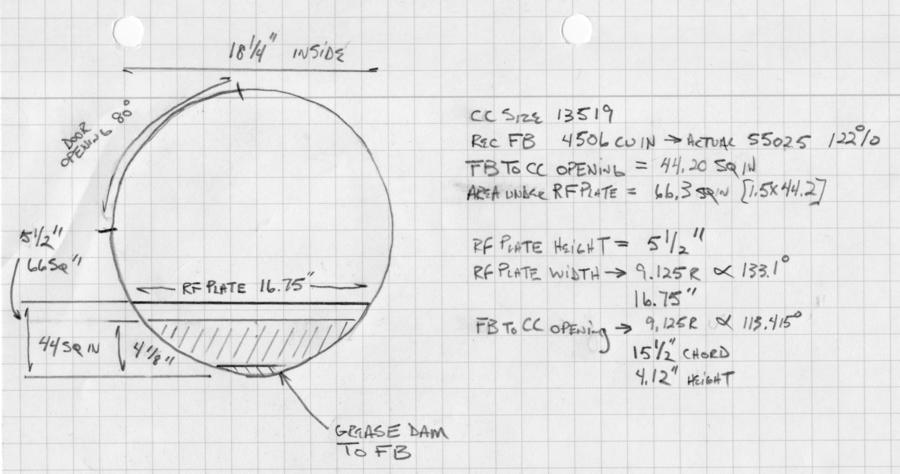 18 1/4" INSIDE
DOOR OPENING 80°
5 1/2"
66 SQ "
RF PLATE 16.75"
44 SQ IN
4 1/8"
GREASE DAM
TO FB
CC SIZE 13519
REC FB 4506 CU IN → ACTUAL 5502S 122%
FB TO CC OPENING = 44.20 SQ IN
AREA UNDER RF PLATE = 66.3 SQ IN [1.5X44.2]
RF PLATE HEIGHT = 5 1/2"
RF PLATE WIDTH → 9.125R ∝ 133.1°
16.75"
FB TO CC OPENING → 9.125R ∝ 113.415°
15 1/2" CHORD
4.12" HEIGHT